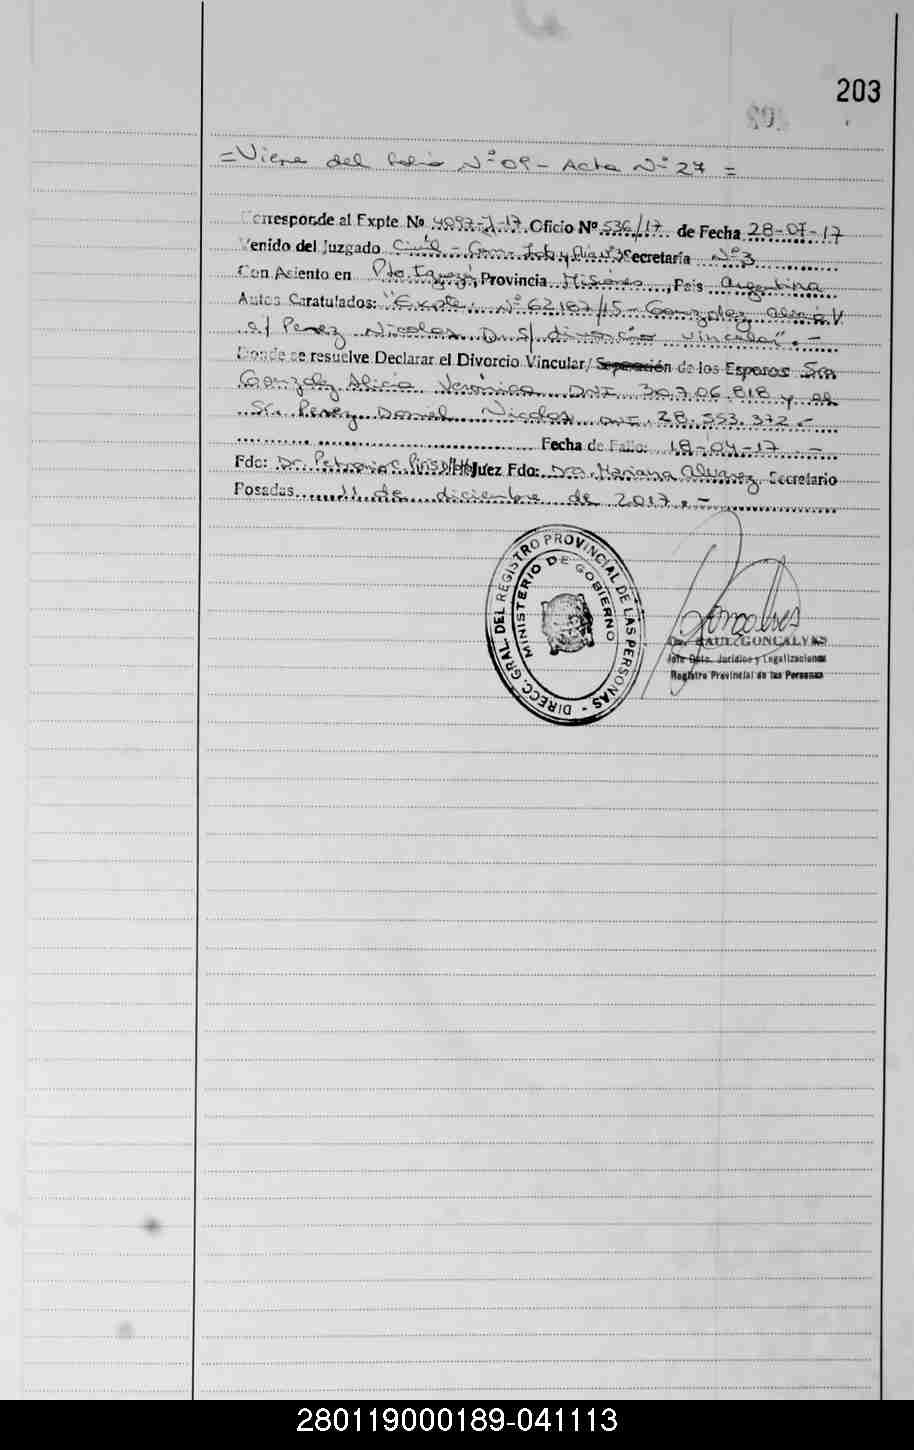 203
=Viene del folio Nº 09 - Acta Nº 27 =
Corresponde al Expte Nº 4097-J-17 Oficio Nº 536/17 de Fecha 28-07-17
Venido del Juzgado Civil - Com. Lab y Flia Nº Secretaría Nº 3
Con Asiento en Pto Iguazú, Provincia Misiones, Pais Argentina
Autos Caratulados: "Expte. Nº 62187/15 - Gonzalez Alicia V
c/ Perez Nicolas D. S/ divorcio vincular". -
Donde se resuelve Declarar el Divorcio Vincular/ Separación de los Esposos Sra
Gonzalez Alicia Veronica DNI 30.706.818 y el
Sr. Perez Daniel Nicolas DNI. 28.553.372 -
Fecha de Fallo: 18-04-17. -
Fdo: Dr. Juez Fdo: Dra. Mariana Alvarez Secretario
Posadas, 11 de diciembre de 2017. -
DIRECC. GRAL. DEL REGISTRO PROVINCIAL DE LAS PERSONAS -
MINISTERIO DE GOBIERNO
Goncalves
Dr. RAUL GONCALVES
Jefe Dpto. Jurídico y Legalizaciones
Registro Provincial de las Personas
280119000189-041113